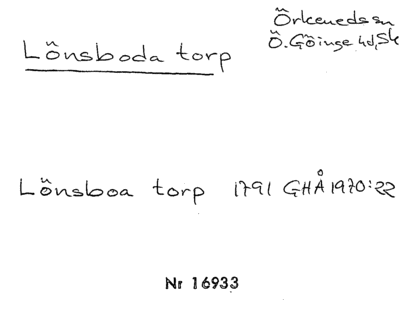 Örkeneds sn
Lönsboda torp
Ö. Göinge hd, Sk
Lönsboa torp 1791 GHÅ 1970:22
Nr 16933